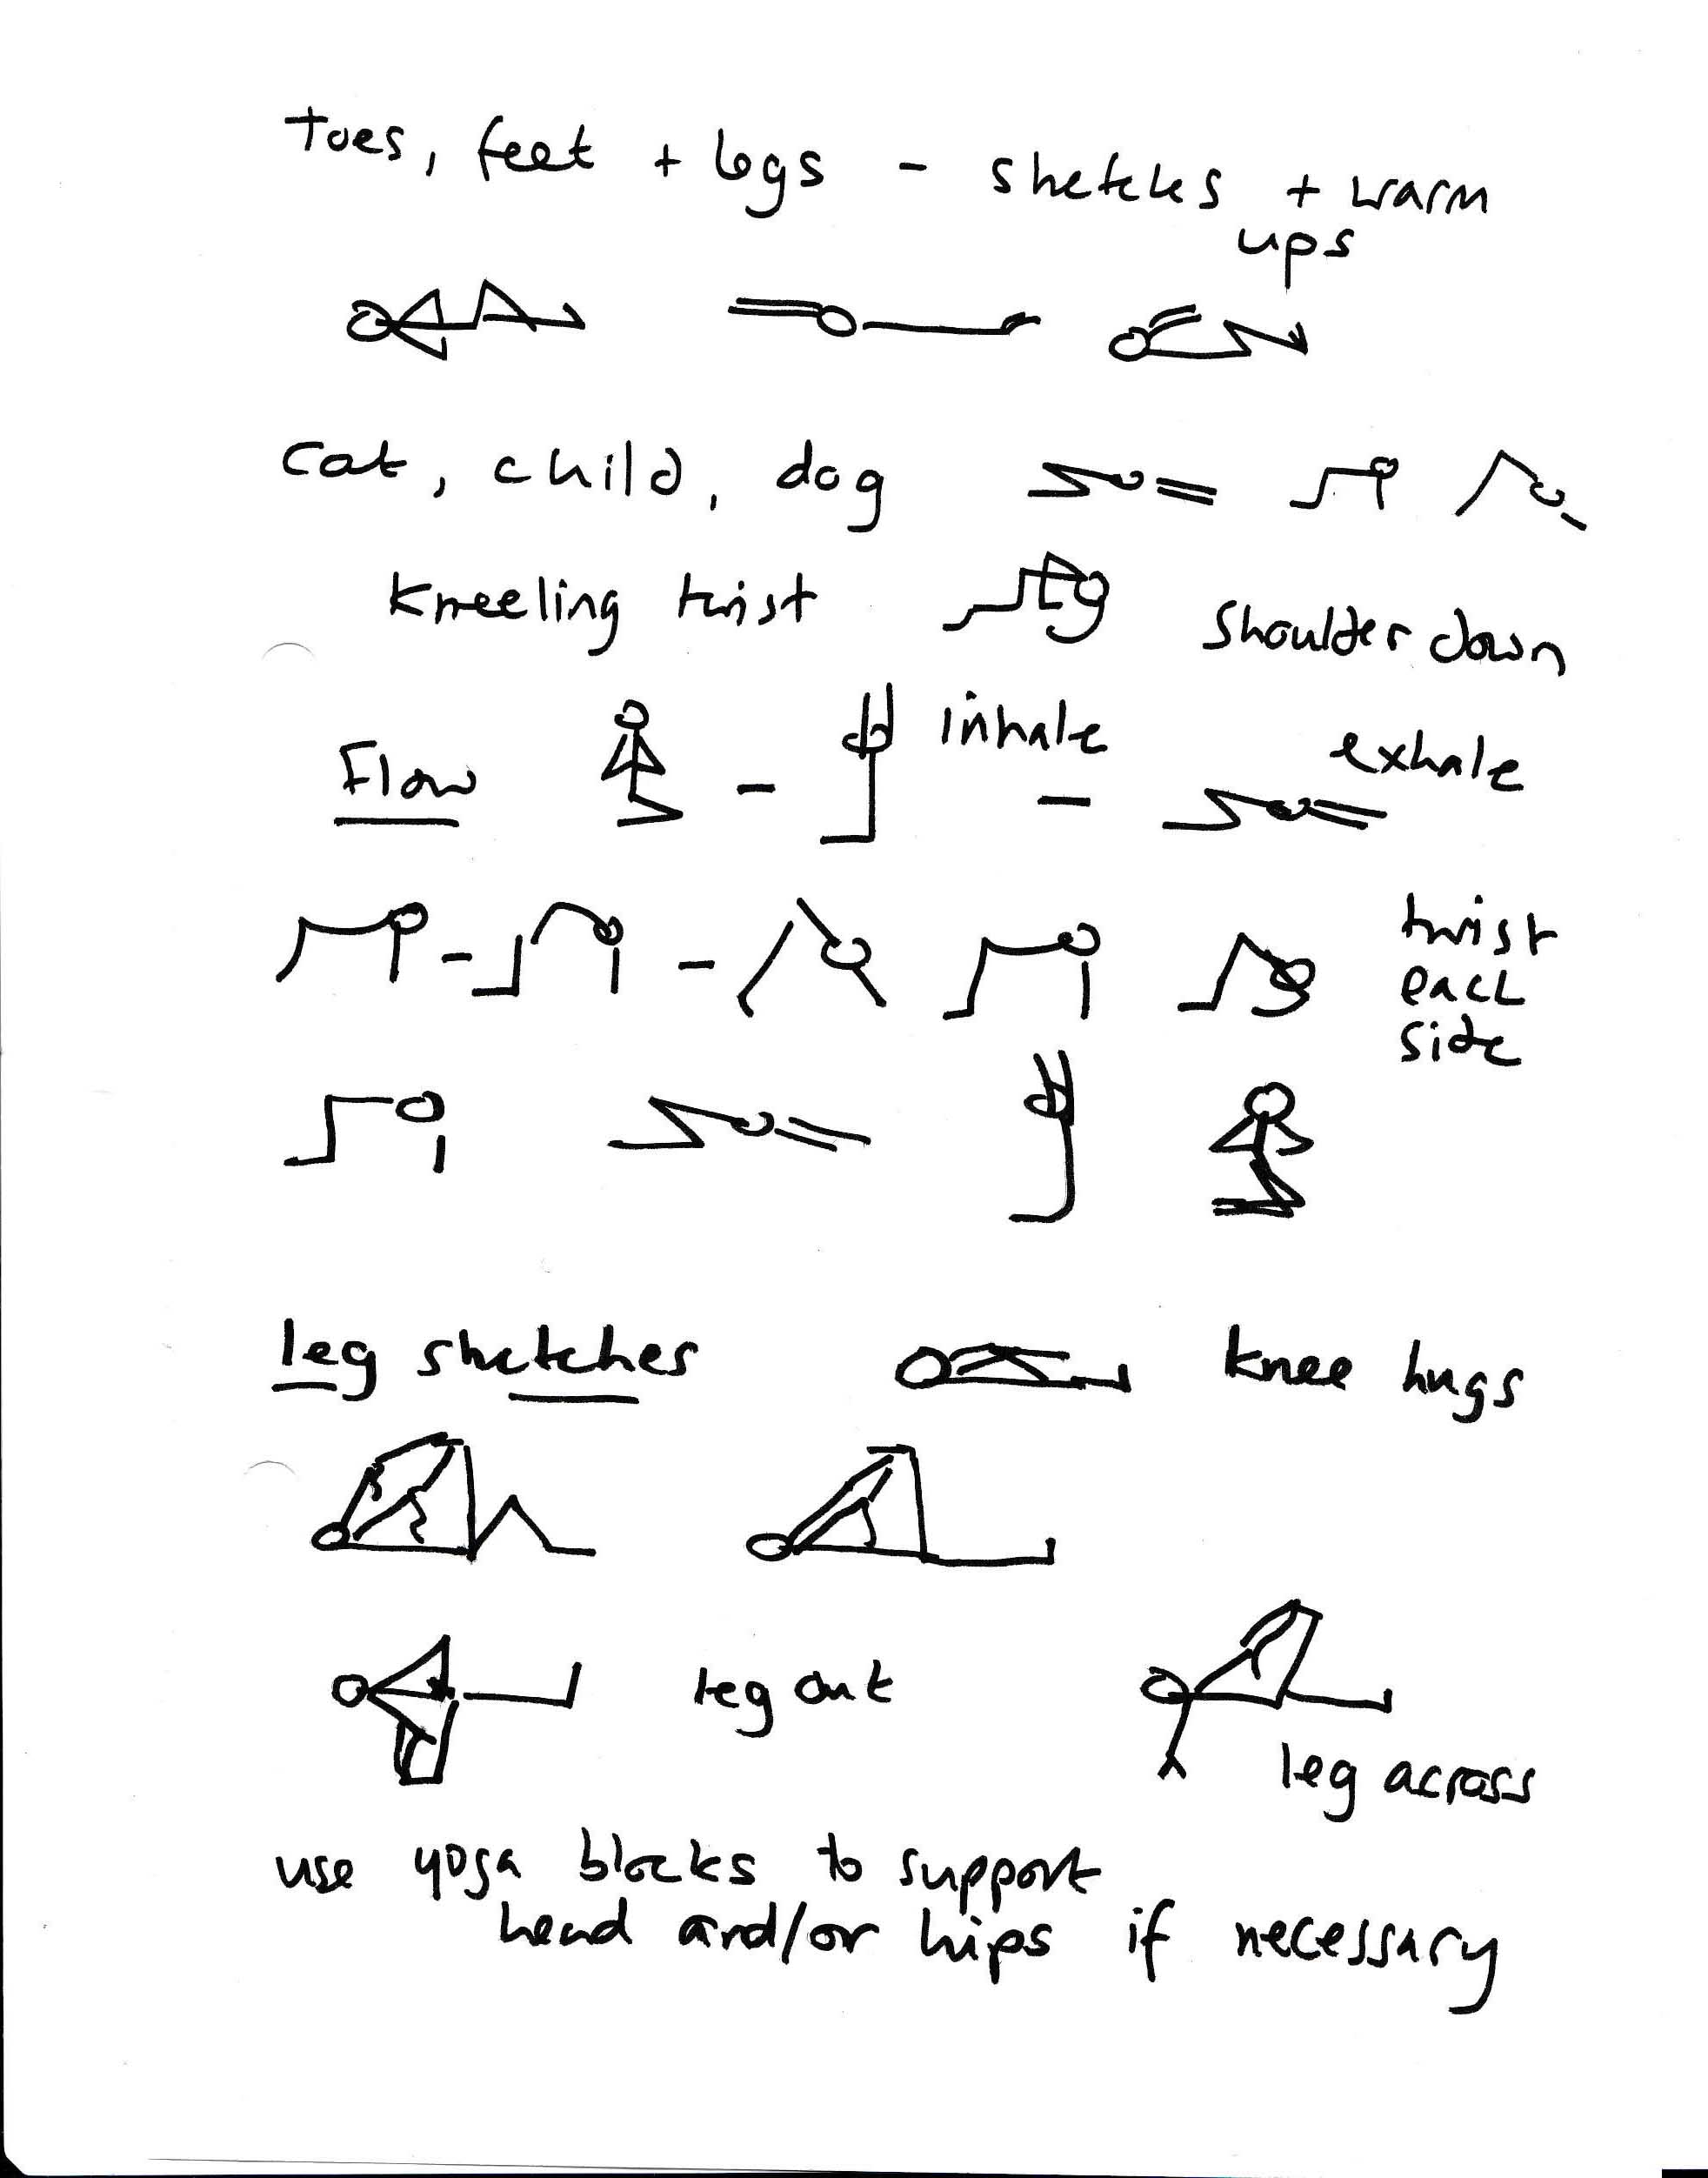 Toes, feet + legs - stretches + warm
ups
Cat, child, dog
Kneeling twist
Shoulder down
Flow
inhale
exhale
twist
each
side
leg stretches
knee hugs
leg out
leg across
use yoga blocks to support
head and/or hips if necessary